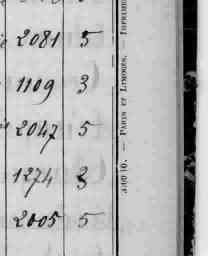 2081 5
1109 3
2047 5
1274 3
2005 5
PARIS ET LIMOGES. — IMPRIME